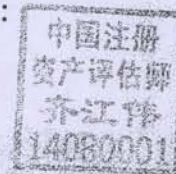 :
中国注册
资产评估师
齐江伟
14080001